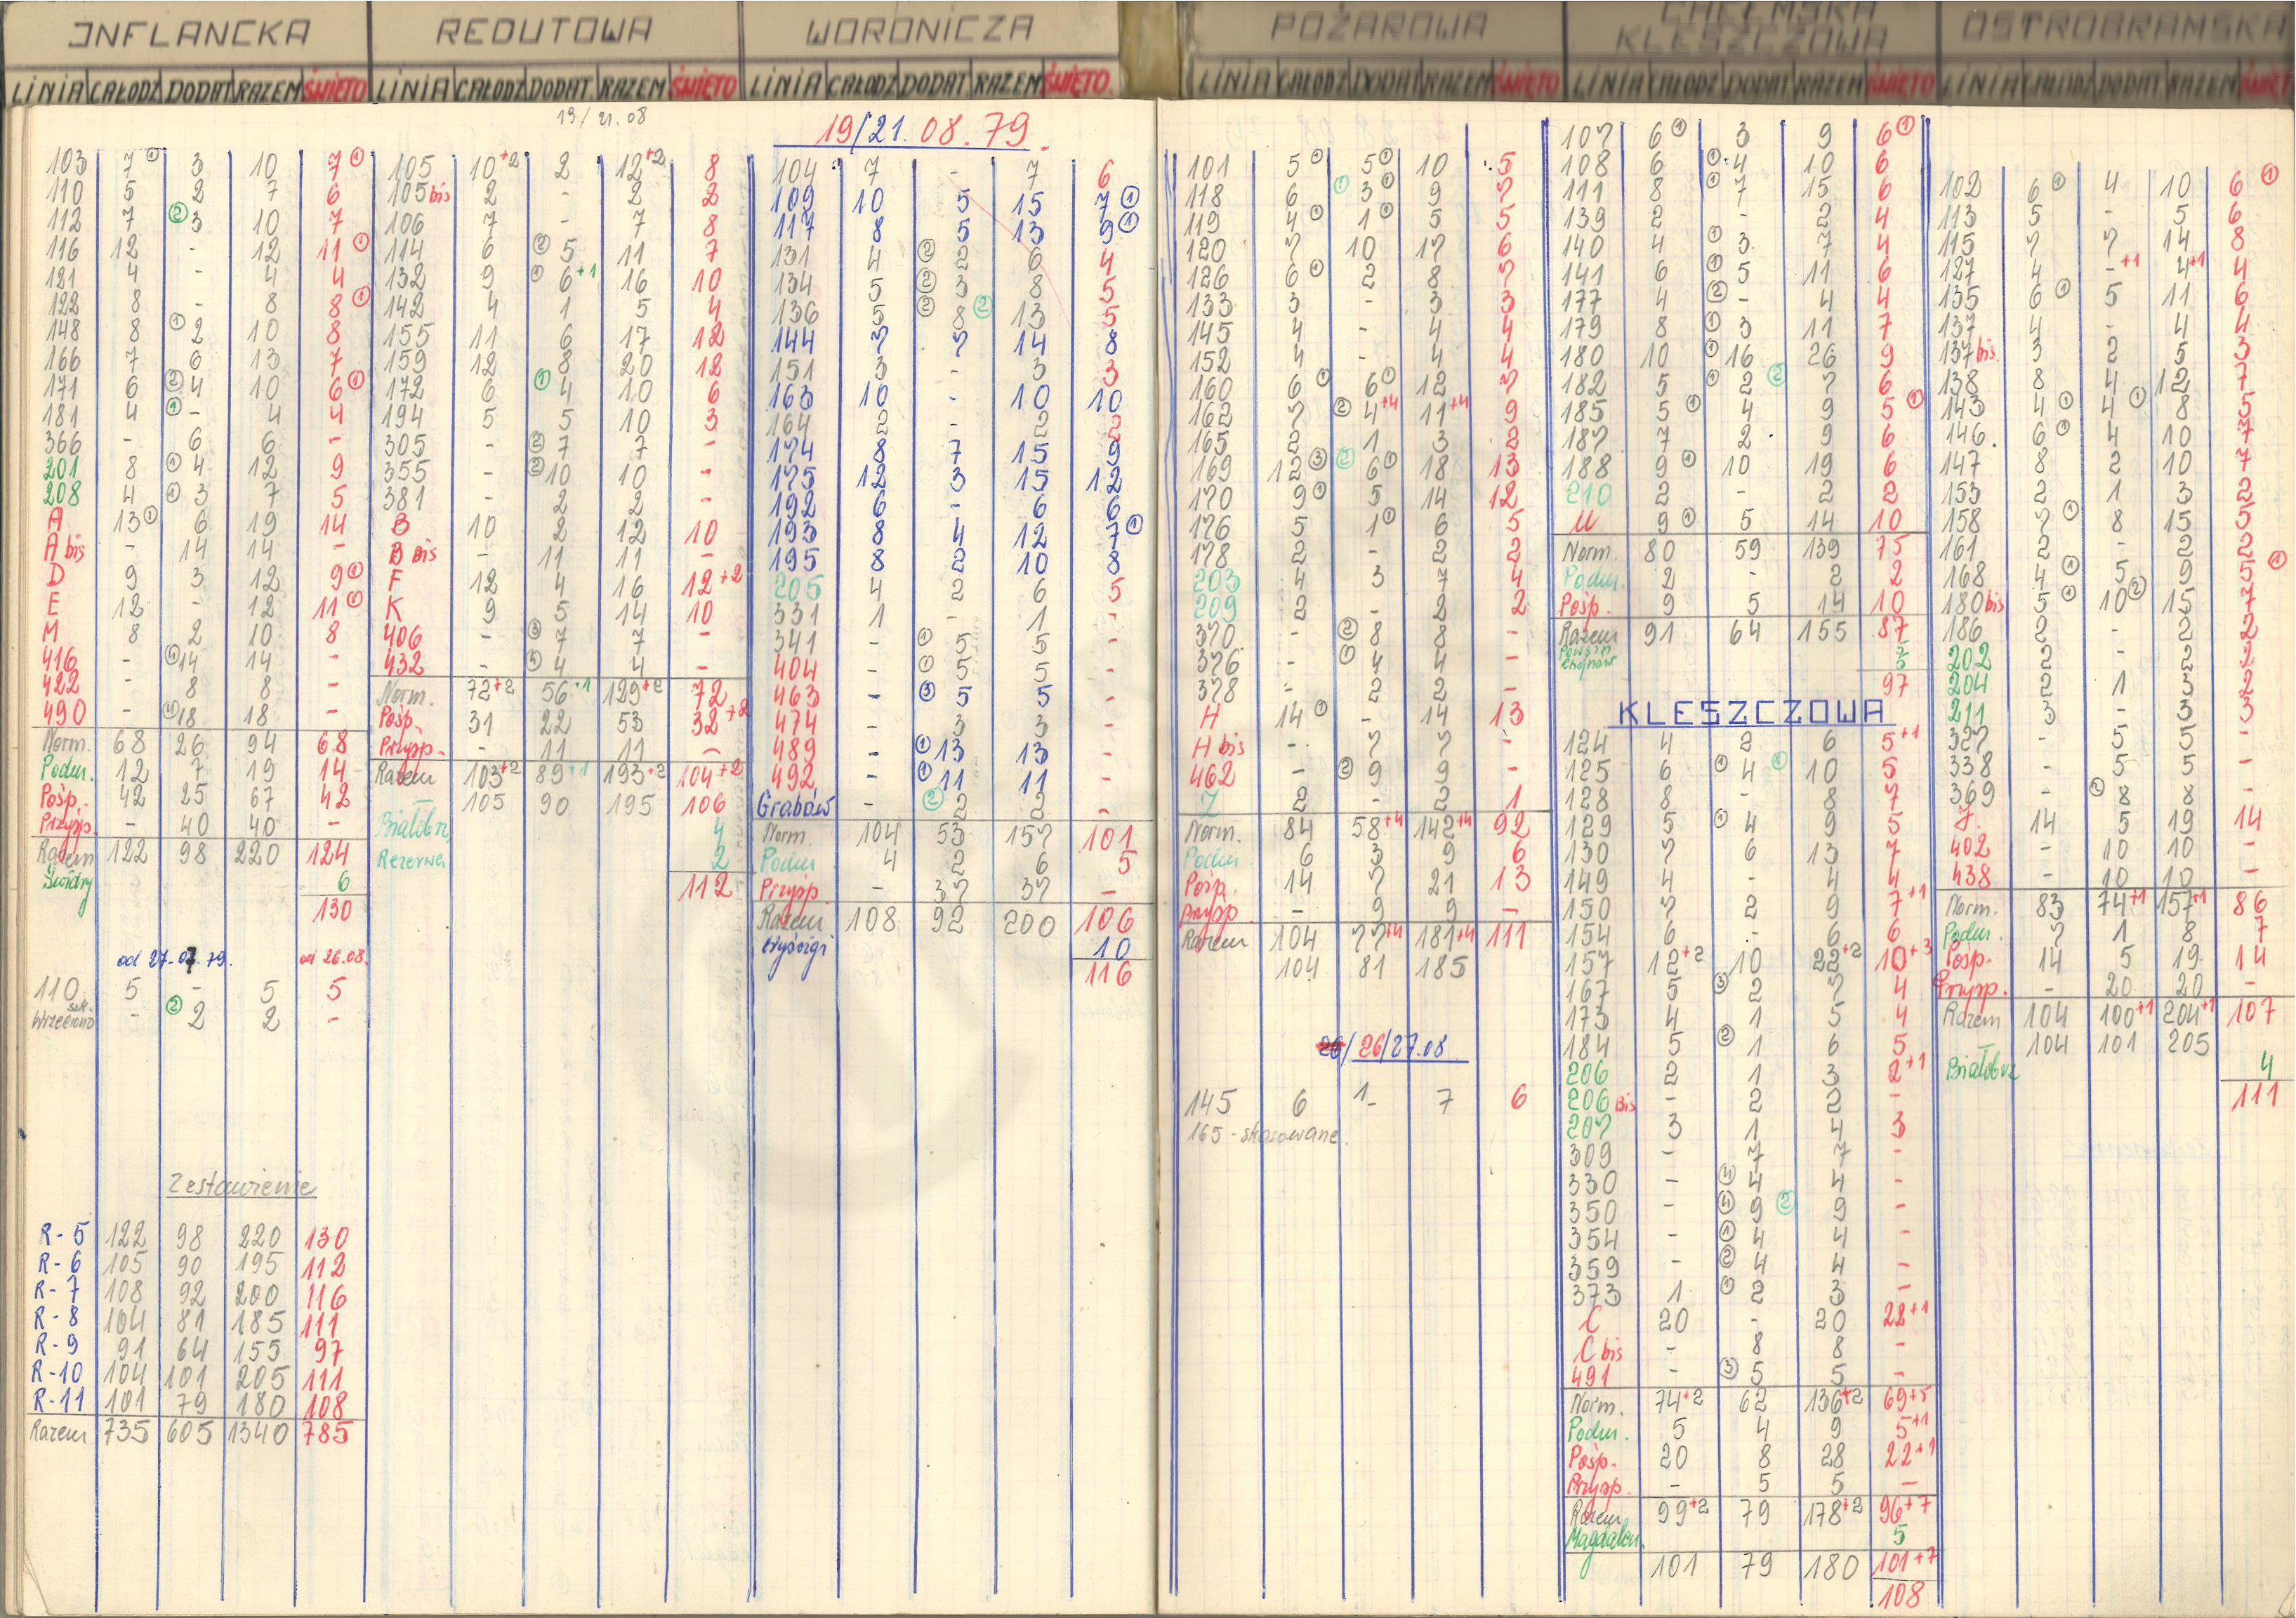 INFLANCKA
LINIA CAŁODZ DODAT RAZEM ŚWIĘTO
103 7① 3 10 7①
110 5 2 7 6
112 7 ②3 10 7
116 12 - 12 11①
121 4 - 4 4
122 8 - 8 8①
148 8 ①2 10 8
166 7 6 13 7
171 6 ②4 10 6①
181 4 ①- 4 4
366 - 6 6 -
201 8 ①4 12 9
208 4 ①3 7 5
A 13① 6 19 14
A bis - 14 14 -
D 9 3 12 9①
E 12 - 12 11①
M 8 2 10 8
416 - ①14 14 -
422 - 8 8 -
490 - ④18 18 -
Norm. 68 26 94 68
Podm. 12 7 19 14
Pośp. 42 25 67 42
Przysp. - 40 40 -
Razem 122 98 220 124
Świdry 6
130
od 27.07.79. od 26.08.
110 5 - 5 5
Wrzeciono - ②2 2 -
Zestawienie
R-5 122 98 220 130
R-6 105 90 195 112
R-7 108 92 200 116
R-8 104 81 185 111
R-9 91 64 155 97
R-10 104 101 205 111
R-11 101 79 180 108
Razem 735 605 1340 785
REDUTOWA
LINIA CAŁODZ DODAT RAZEM ŚWIĘTO
19/21.08
105 10+2 2 12+2 8
105 bis 2 - 2 2
106 7 - 7 8
114 6 ②5 11 7
132 9 ①6+1 16 10
142 4 1 5 4
155 11 6 17 12
159 12 8 20 12
172 6 ①4 10 6
194 5 5 10 3
305 - ②7 7 -
355 - ②10 10 -
381 - 2 2 -
B 10 2 12 10
B bis - 11 11 -
F 12 4 16 12+2
K 9 5 14 10
406 - ③7 7 -
432 - 4 4 -
Norm. 72+2 56+1 129+2 72
Pośp. 31 22 53 32+2
Przysp. - 11 11 -
Razem 103+2 89+1 193+2 104+2
105 90 195 106
Białobrz. 4
Rezerwa 2
112
WORONICZA
LINIA CAŁODZ DODAT RAZEM ŚWIĘTO.
19/21.08.79.
104 7 - 7 6
109 10 5 15 7①
117 8 5 13 9①
131 4 ②2 6 4
134 5 ②3 8 5
136 5 ②8② 13 5
144 7 7 14 8
151 3 - 3 3
163 10 - 10 10
164 2 - 2 2
174 8 7 15 9
175 12 3 15 12
192 6 - 6 6
193 8 4 12 7①
195 8 2 10 8
205 4 2 6 5
331 1 - 1 -
341 - ①5 5 -
404 - ①5 5 -
463 - ③5 5 -
474 - 3 3 -
489 - ①13 13 -
492 - ①11 11 -
Grabów - ②2 2 -
Norm 104 53 157 101
Podm 4 2 6 5
Przysp - 37 37 -
Razem 108 92 200 106
Wyścigi 10
116
POŻAROWA
LINIA CAŁODZ DODAT RAZEM ŚWIĘTO
101 5① 5① 10 5
118 6 ①3① 9 7
119 4① 1① 5 5
120 7 10 17 6
126 6① 2 8 7
133 3 - 3 3
145 4 - 4 4
152 4 - 4 4
160 6① 6① 12 7
162 7 ②4+4 11+4 9
165 2 1 3 2
169 12③ ②6① 18 13
170 9① 5 14 12
176 5 1① 6 5
178 2 - 2 2
203 4 3 7 4
209 2 - 2 2
370 - ②8 8 -
376 - ①4 4 -
378 - 2 2 -
H 14① - 14 13
H bis - 7 7 -
462 - ②9 9 -
Z 2 - 2 1
Norm. 84 58+4 142+4 92
Podm 6 3 9 6
Pośp. 14 7 21 13
Przysp - 9 9 -
Razem 104 77+4 181+4 111
104 81 185
26/27.08
145 6 1- 7 6
165 - skasowane.
CHEŁMSKA
KLESZCZOWA
LINIA CAŁODZ DODAT RAZEM ŚWIĘTO
107 6① 3 9 6①
108 6 ①4 10 6
111 8 ①7 15 6
139 2 - 2 4
140 4 ①3 7 4
141 6 ①5 11 6
177 4 ②- 4 4
179 8 ①3 11 7
180 10 ①16 26 9
182 5 ①2② 7 6
185 5① 4 9 5①
187 7 2 9 6
188 9① 10 19 6
210 2 - 2 2
U 9① 5 14 10
Norm. 80 59 139 75
Podm. 2 - 2 2
Pośp. 9 5 14 10
Razem 91 64 155 87
Powsin
Chojnów
97
KLESZCZOWA
124 4 2 6 5+1
125 6 ①4① 10 5
128 8 - 8 7
129 5 ①4 9 5
130 7 6 13 7
149 4 - 4 4
150 7 2 9 7+1
154 6 - 6 6
157 12+2 10 22+2 10+3
167 5 ③2 7 4
173 4 1 5 4
184 5 ②1 6 5
206 2 1 3 2+1
206 Bis - 2 2 -
207 3 1 4 3
309 - 7 7 -
330 - ④4 4 -
350 - ④9② 9 -
354 - ①4 4 -
359 - ②4 4 -
373 1 ①2 3 -
C 20 - 20 22+1
C bis - 8 8 -
491 - ③5 5 -
Norm. 74+2 62 136+2 69+5
Podm. 5 4 9 5+1
Pośp. 20 8 28 22+1
Przysp. - 5 5 -
Razem 99+2 79 178+2 96+7
Magdalen. 5
101 79 180 101+7
108
OSTROBRAMSKA
LINIA CAŁODZ DODAT RAZEM
102 6① 4 10 6①
113 5 - 5 6
115 7 7 14 8
127 4 -+1 4+1 4
135 6① 5 11 6
137 4 - 4 4
137 bis 3 2 5 3
138 8 4 12 7
143 4① 4① 8 5
146. 6① 4 10 7
147 8 2 10 7
153 2 1 3 2
158 7① 8 15 5
161 2 - 2 2
168 4① 5 9 5①
180 bis 5① 10② 15 7
186 2 - 2 2
202 2 - 2 2
204 2 1 3 2
211 3 - 3 3
327 - 5 5 -
338 - 5 5 -
369 - ②8 8 -
J. 14 5 19 14
402 - 10 10 -
438 - 10 10 -
Norm. 83 74+1 157+1 86
Podm. 7 1 8 7
Pośp. 14 5 19 14
Przysp. - 20 20 -
Razem 104 100+1 204+1 107
104 101 205
Białobrz 4
111